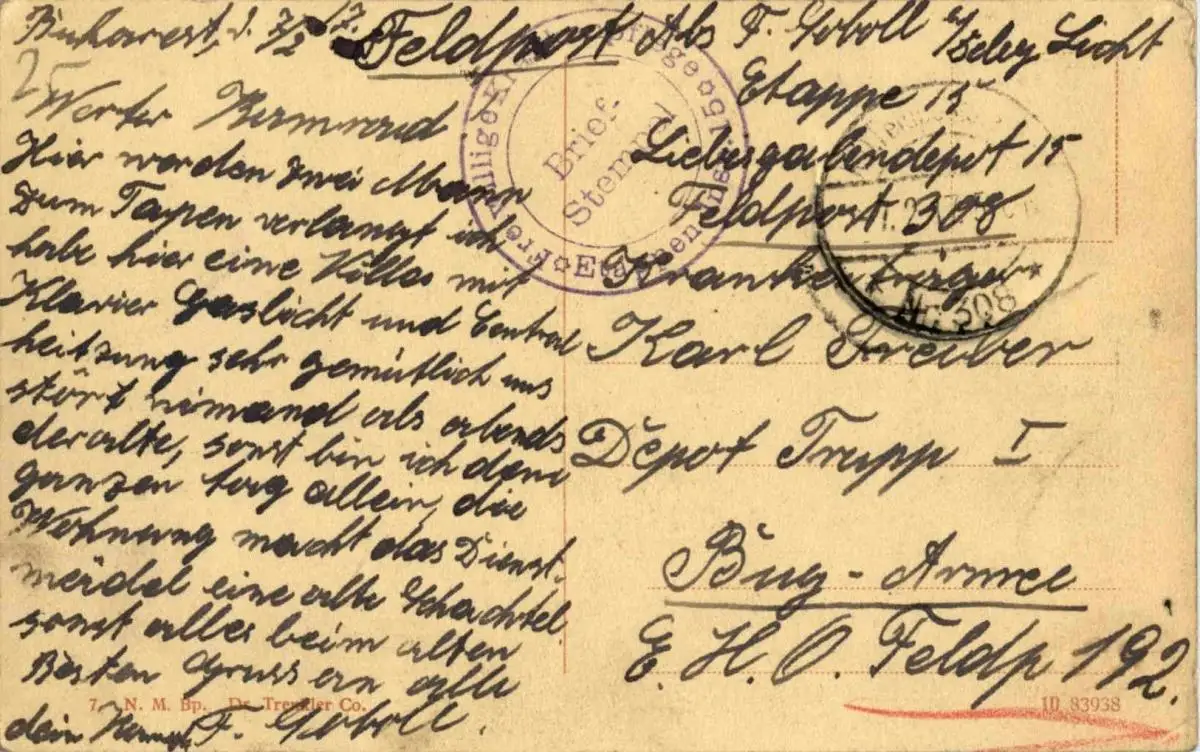 Bukarest, d. 7/2 17.
Feldpost Abs F. Goboll
Etappe 15
Liebesgabendepot 15
Feldpost. 308
25
Werter
Hier werden zwei Mann
zum verlangt ich
habe hier eine Villa mit
Klavier Gaslicht und Central
heitzung sehr gemütlich uns
stört nimand als abends
der alte, sonst bin ich den
ganzen tag allein, die
Wohnung macht das Dienst-
mädel eine alte Schachtel
sonst alles beim alten
Besten Gruss an alle
dein F. Goboll.
Krankenträger
Karl Treiber
Depot Trupp I
Bug-Armee
E. H. O. Feldp 192.
Brief-
Stempel
Nr. 308
7. N. M. Bp. Dr. Trenkler Co.
1D 83938